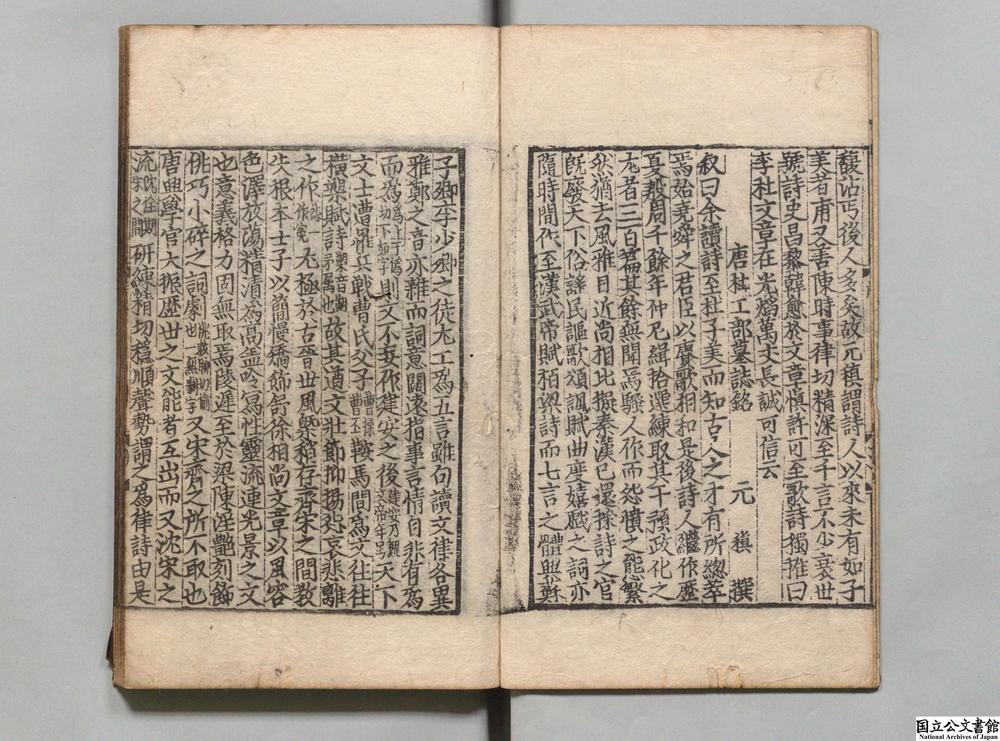 馥沾丐後人多矣故元稹謂詩人以來未有如子
美者甫又善陳時事律切精深至千言不少衰世
號詩史昌黎韓愈於文章慎許可至歌詩獨推曰
李杜文章在光熖萬丈長誠可信云
唐杜工部墓誌銘 元稹 撰
叙曰余讀詩至杜子美而知古人之才有所總萃
焉始堯舜之君臣以賡歌相和是後詩人繼作歷
夏殷周千餘年仲尼緝拾選練取其干預政化之
尤者三百篇其餘無聞焉騷人作而怨憤之態繁
然猶去風雅日近尚相比擬秦漢已還採詩之官
旣廢天下俗謡民謳歌頌諷賦曲度嬉戲之詞亦
隨時間作至漢武帝賦栢梁詩而七言之體興蘇
子卿李少卿之徒尤工爲五言雖句讀文律各異
雅鄭之音亦雜而詞意闊遠指事言情自非有爲
而爲則文不妄作建安之後天下
文士遭罹兵戰曹氏父子鞍馬間爲文往往
横槊賦詩故其遒文壯節抑揚怨哀悲離
之作尤極於古晉世風槩稍存齊宋之間教
失根本士子以簡慢矯飾舒徐相尚文章以風容
色澤放蕩精清爲高盖吟寫性靈流連光景之文
也意義格力固無取焉陵遲至於梁陳淫艶刻飾
佻巧小碎之詞劇又宋齊之所不取也
唐興學官大振歷世之文能者互出而又沈宋之
流研練精切穩順聲勢謂之爲律詩由是
国立公文書館
National Archives of Japan